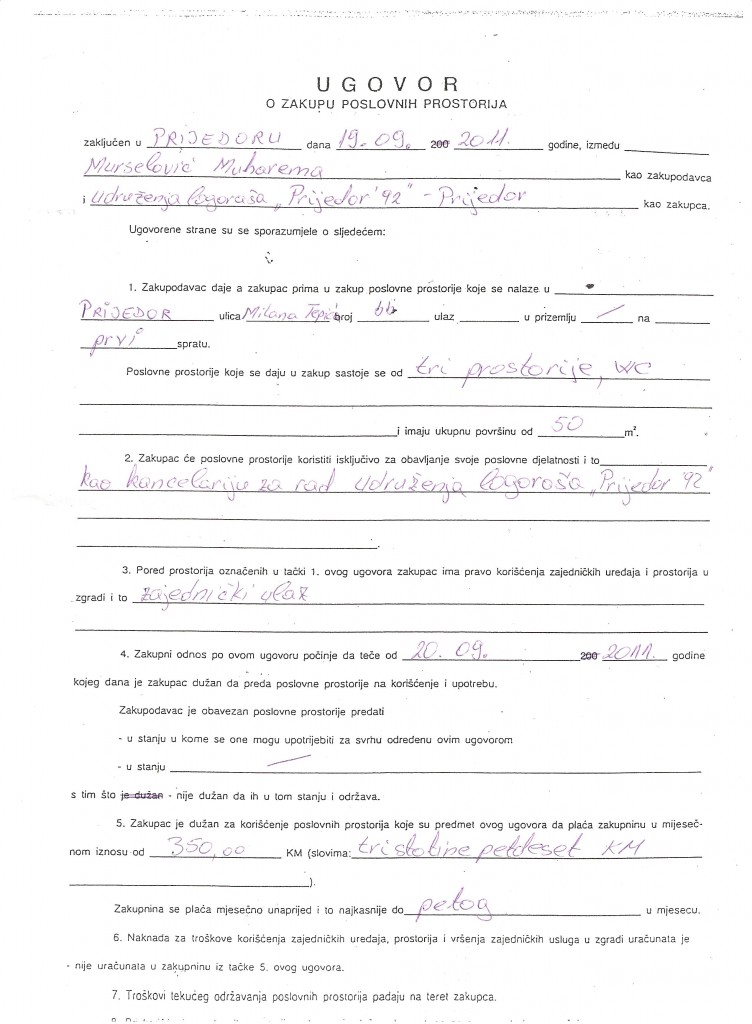 UGOVOR
O ZAKUPU POSLOVNIH PROSTORIJA
zaključen u PRIJEDORU dana 19.09. 200 2011. godine, između
Murselović Muharema kao zakupodavca
i Udruženja logoraša „Prijedor '92" - Prijedor kao zakupca.
Ugovorene strane su se sporazumjele o sljedećem:
1. Zakupodavac daje a zakupac prima u zakup poslovne prostorije koje se nalaze u
PRIJEDOR ulica Milana Tepića broj bb ulaz u prizemlju / na
prvi spratu.
Poslovne prostorije koje se daju u zakup sastoje se od tri prostorije, WC
i imaju ukupnu površinu od 50 m².
2. Zakupac će poslovne prostorije koristiti isključivo za obavljanje svoje poslovne djelatnosti i to
kao kancelariju za rad Udruženja logoraša „Prijedor 92"
3. Pored prostorija označenih u tački 1. ovog ugovora zakupac ima pravo korišćenja zajedničkih uređaja i prostorija u
zgradi i to zajednički ulaz
4. Zakupni odnos po ovom ugovoru počinje da teče od 20. 09. 200 2011. godine
kojeg dana je zakupac dužan da preda poslovne prostorije na korišćenje i upotrebu.
Zakupodavac je obavezan poslovne prostorije predati
- u stanju u kome se one mogu upotrijebiti za svrhu određenu ovim ugovorom
- u stanju /
s tim što je dužan - nije dužan da ih u tom stanju i održava.
5. Zakupac je dužan za korišćenje poslovnih prostorija koje su predmet ovog ugovora da plaća zakupninu u mijeseč-
nom iznosu od 350,00 KM (slovima: tristotine petdeset KM
).
Zakupnina se plaća mjesečno unaprijed i to najkasnije do petog u mjesecu.
6. Naknada za troškove korišćenja zajedničkih uređaja, prostorija i vršenja zajedničkih usluga u zgradi uračunata je
- nije uračunata u zakupninu iz tačke 5. ovog ugovora.
7. Troškovi tekućeg održavanja poslovnih prostorija padaju na teret zakupca.